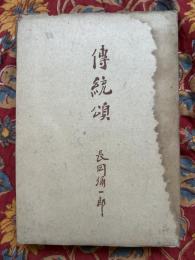 傳統頌
長岡彌一郎